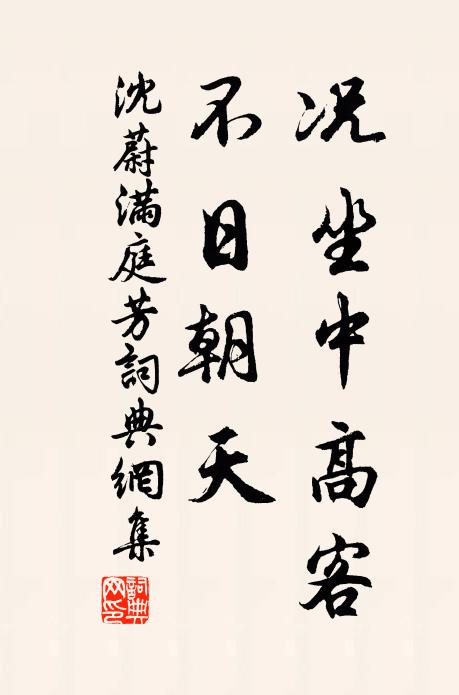 况坐中高客
不日朝天
沈蔚满庭芳詞典網集
詞典网印